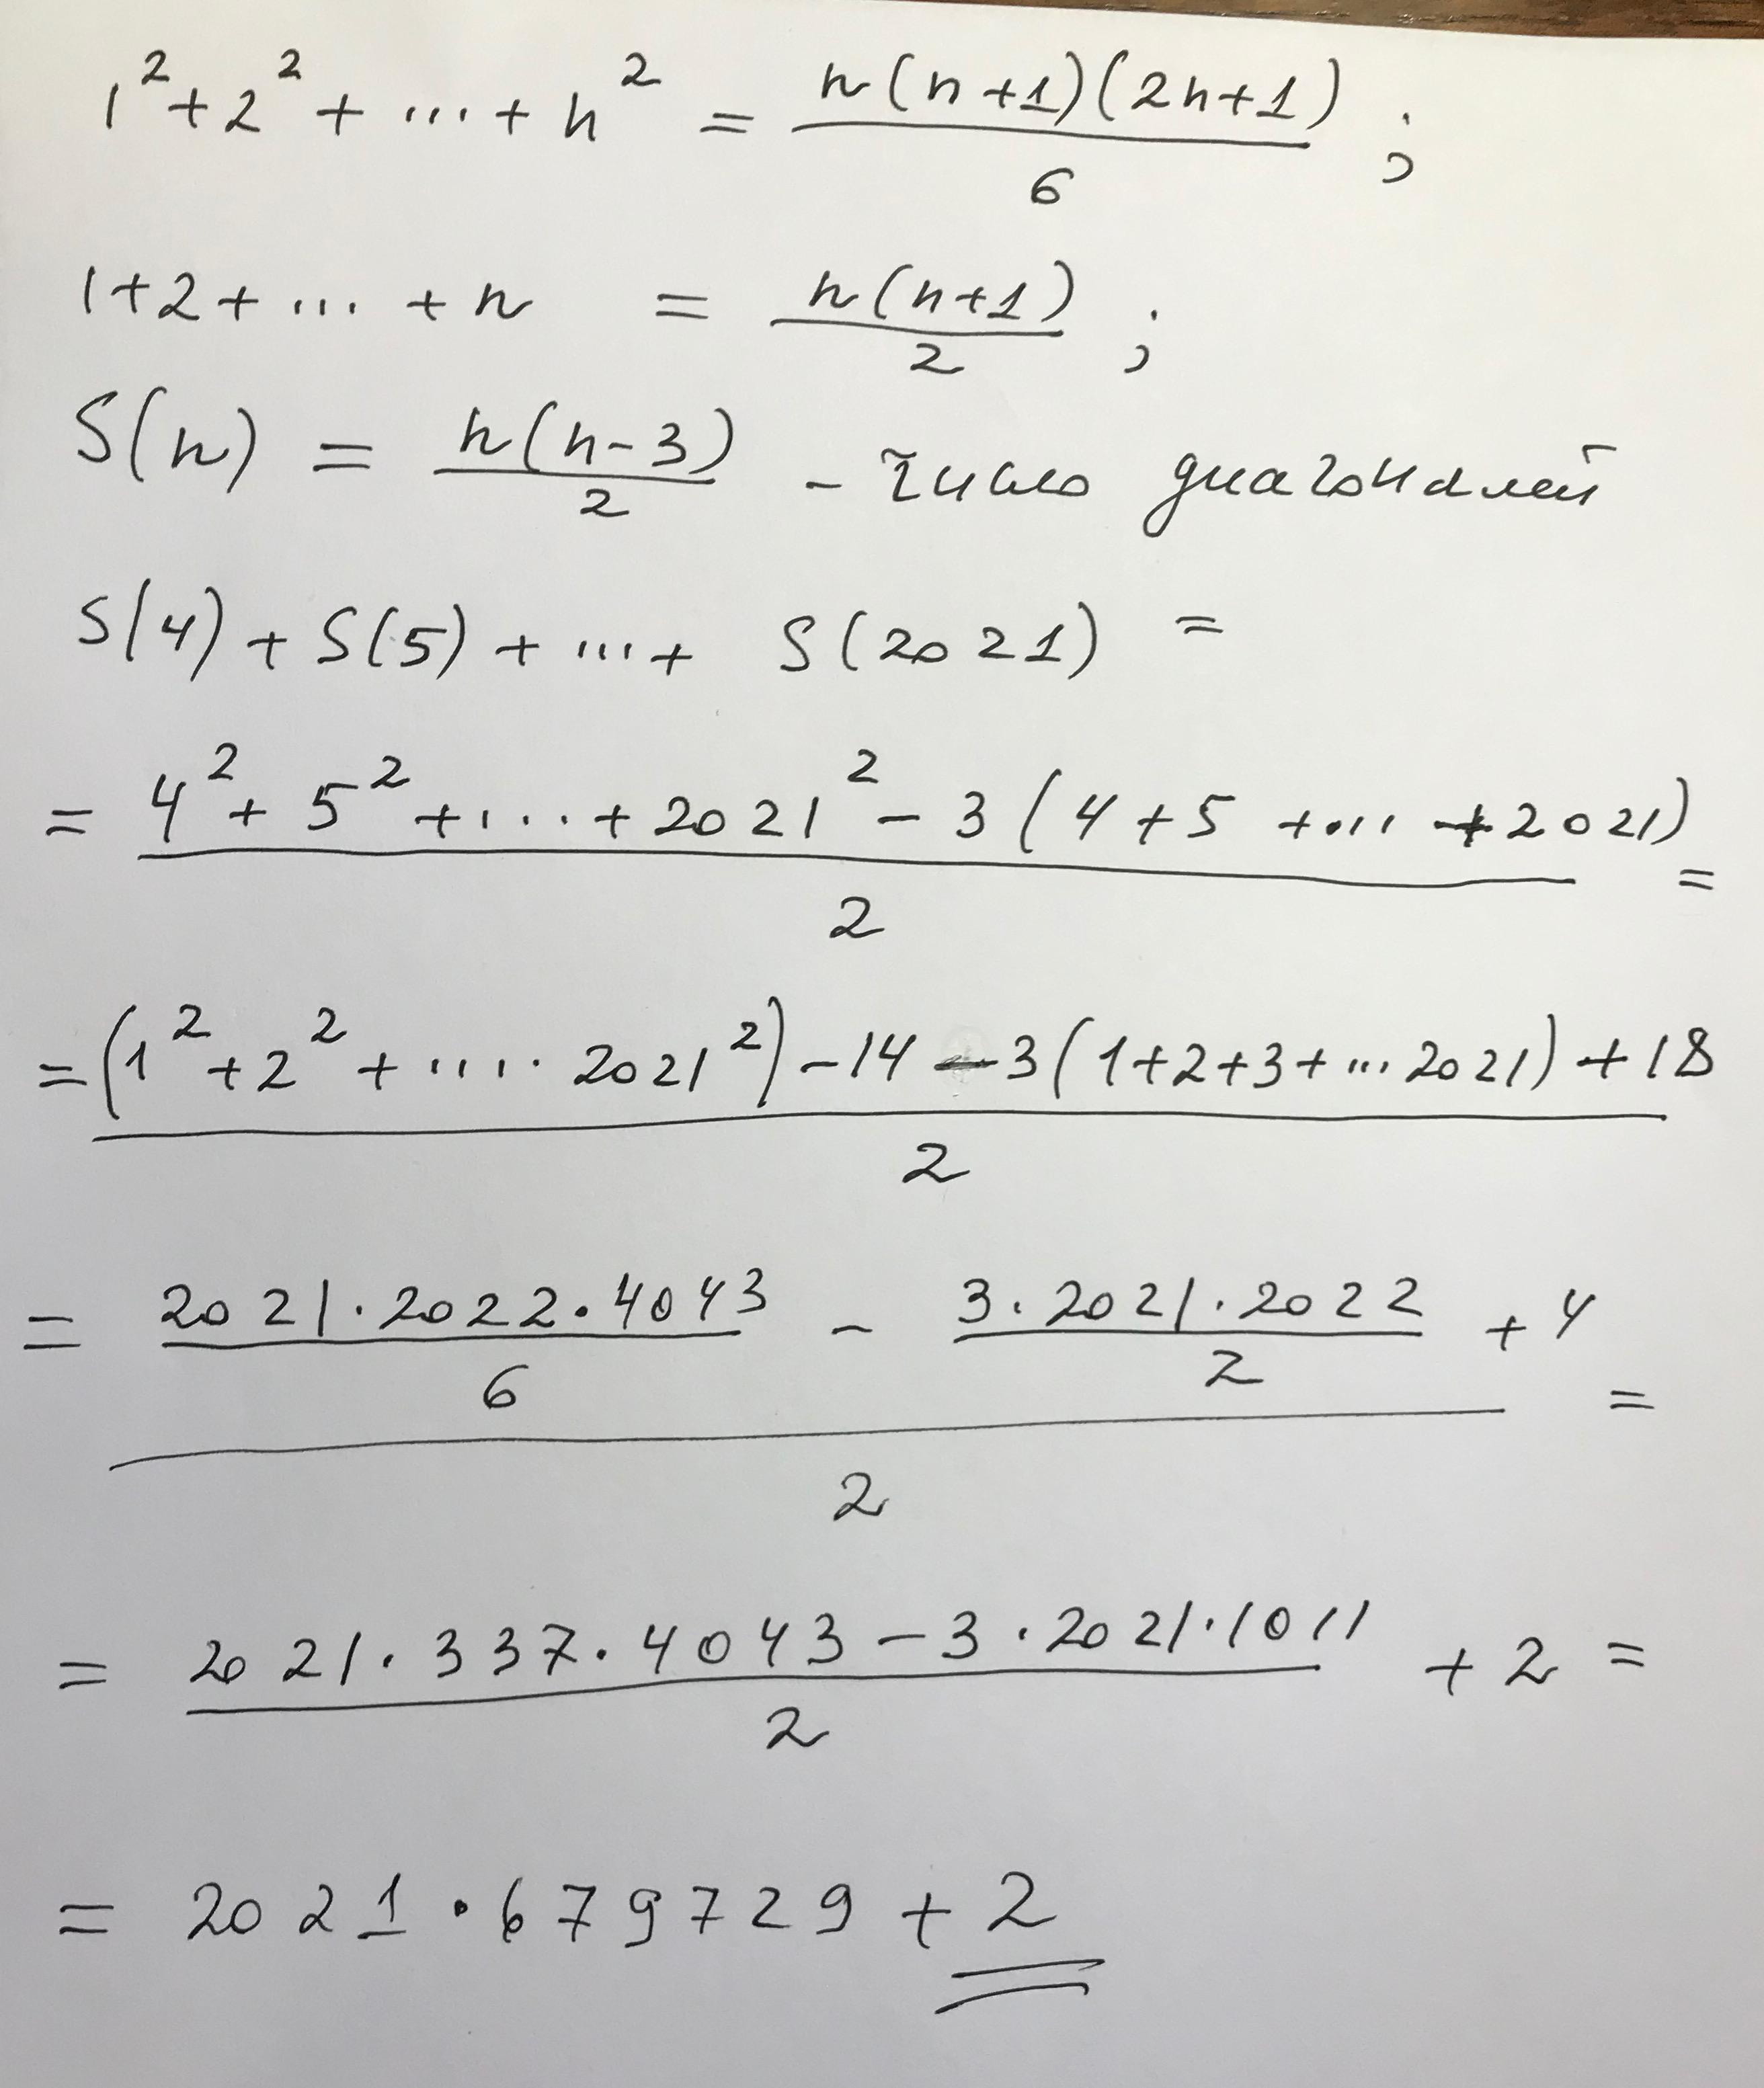 1² + 2² + ... + n² = n(n+1)(2n+1) / 6 ;
1+2+ ... + n = n(n+1) / 2 ;
S(n) = n(n-3) / 2 - число диагоналей
S(4) + S(5) + ... + S(2021) =
= 4² + 5² + ... + 2021² - 3(4+5+... +2021) / 2 =
= (1² + 2² + ..... 2021²) - 14 - 3(1+2+3+...2021) + 18 / 2
= 2021·2022·4043 / 6 - 3·2021·2022 / 2 + 4 / 2 =
= 2021·337·4043 - 3·2021·1011 / 2 + 2 =
= 2021·679729 + 2